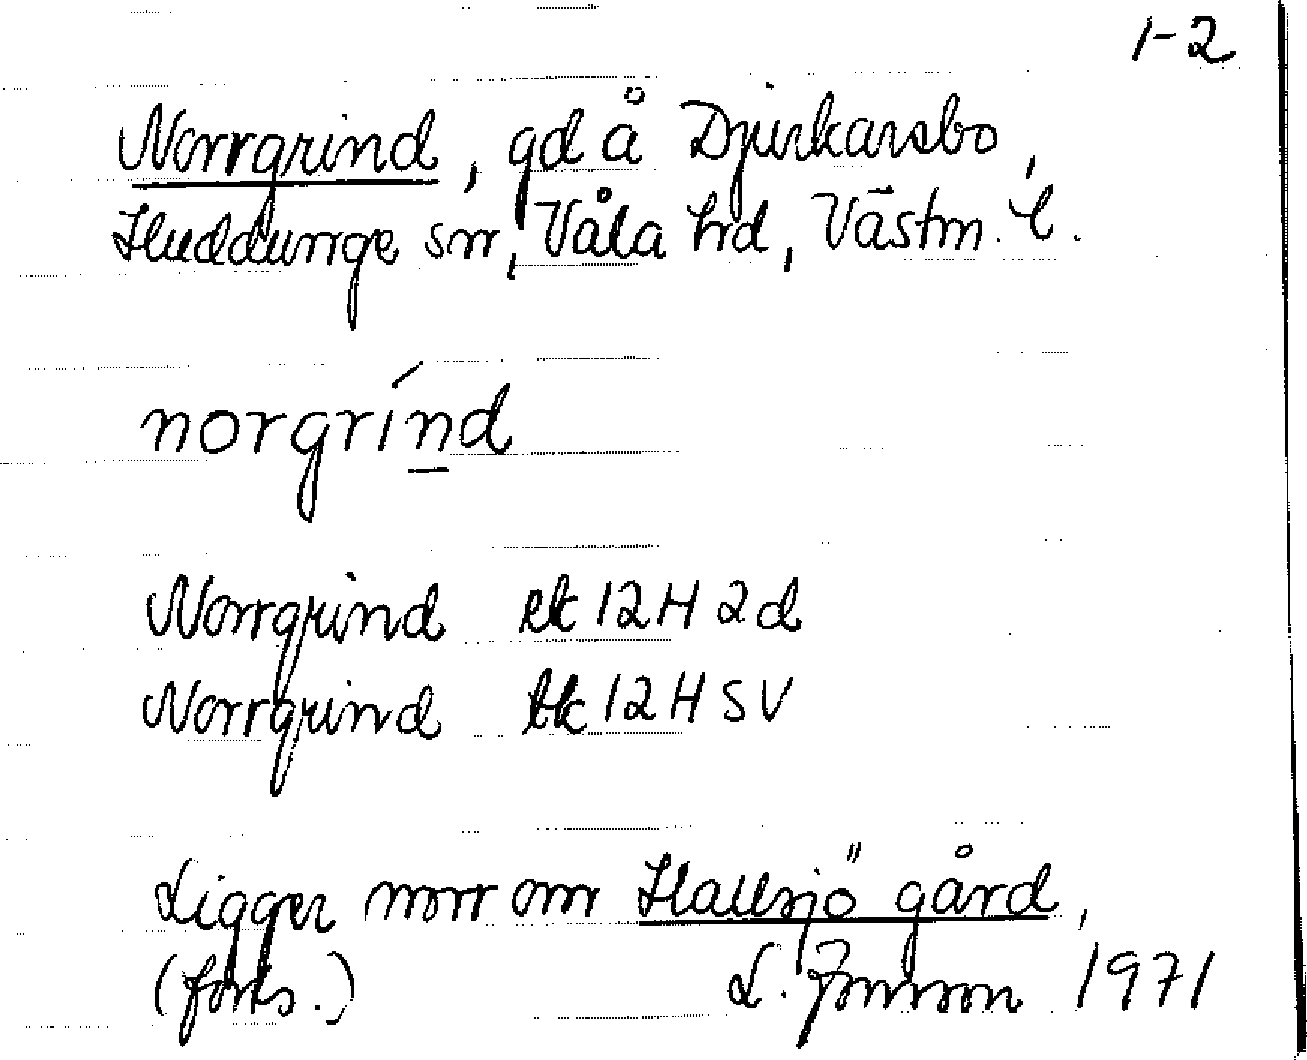 1-2
Norrgrind, gd å Djurkarsbo,
Huddunge sn, Våla hd, Västm. l.
norgrínd
Norrgrind ek 12H 2d
Norrgrind tk 12H SV
Ligger norr om Hallsjö gård,
(forts.) L. Jonson 1971